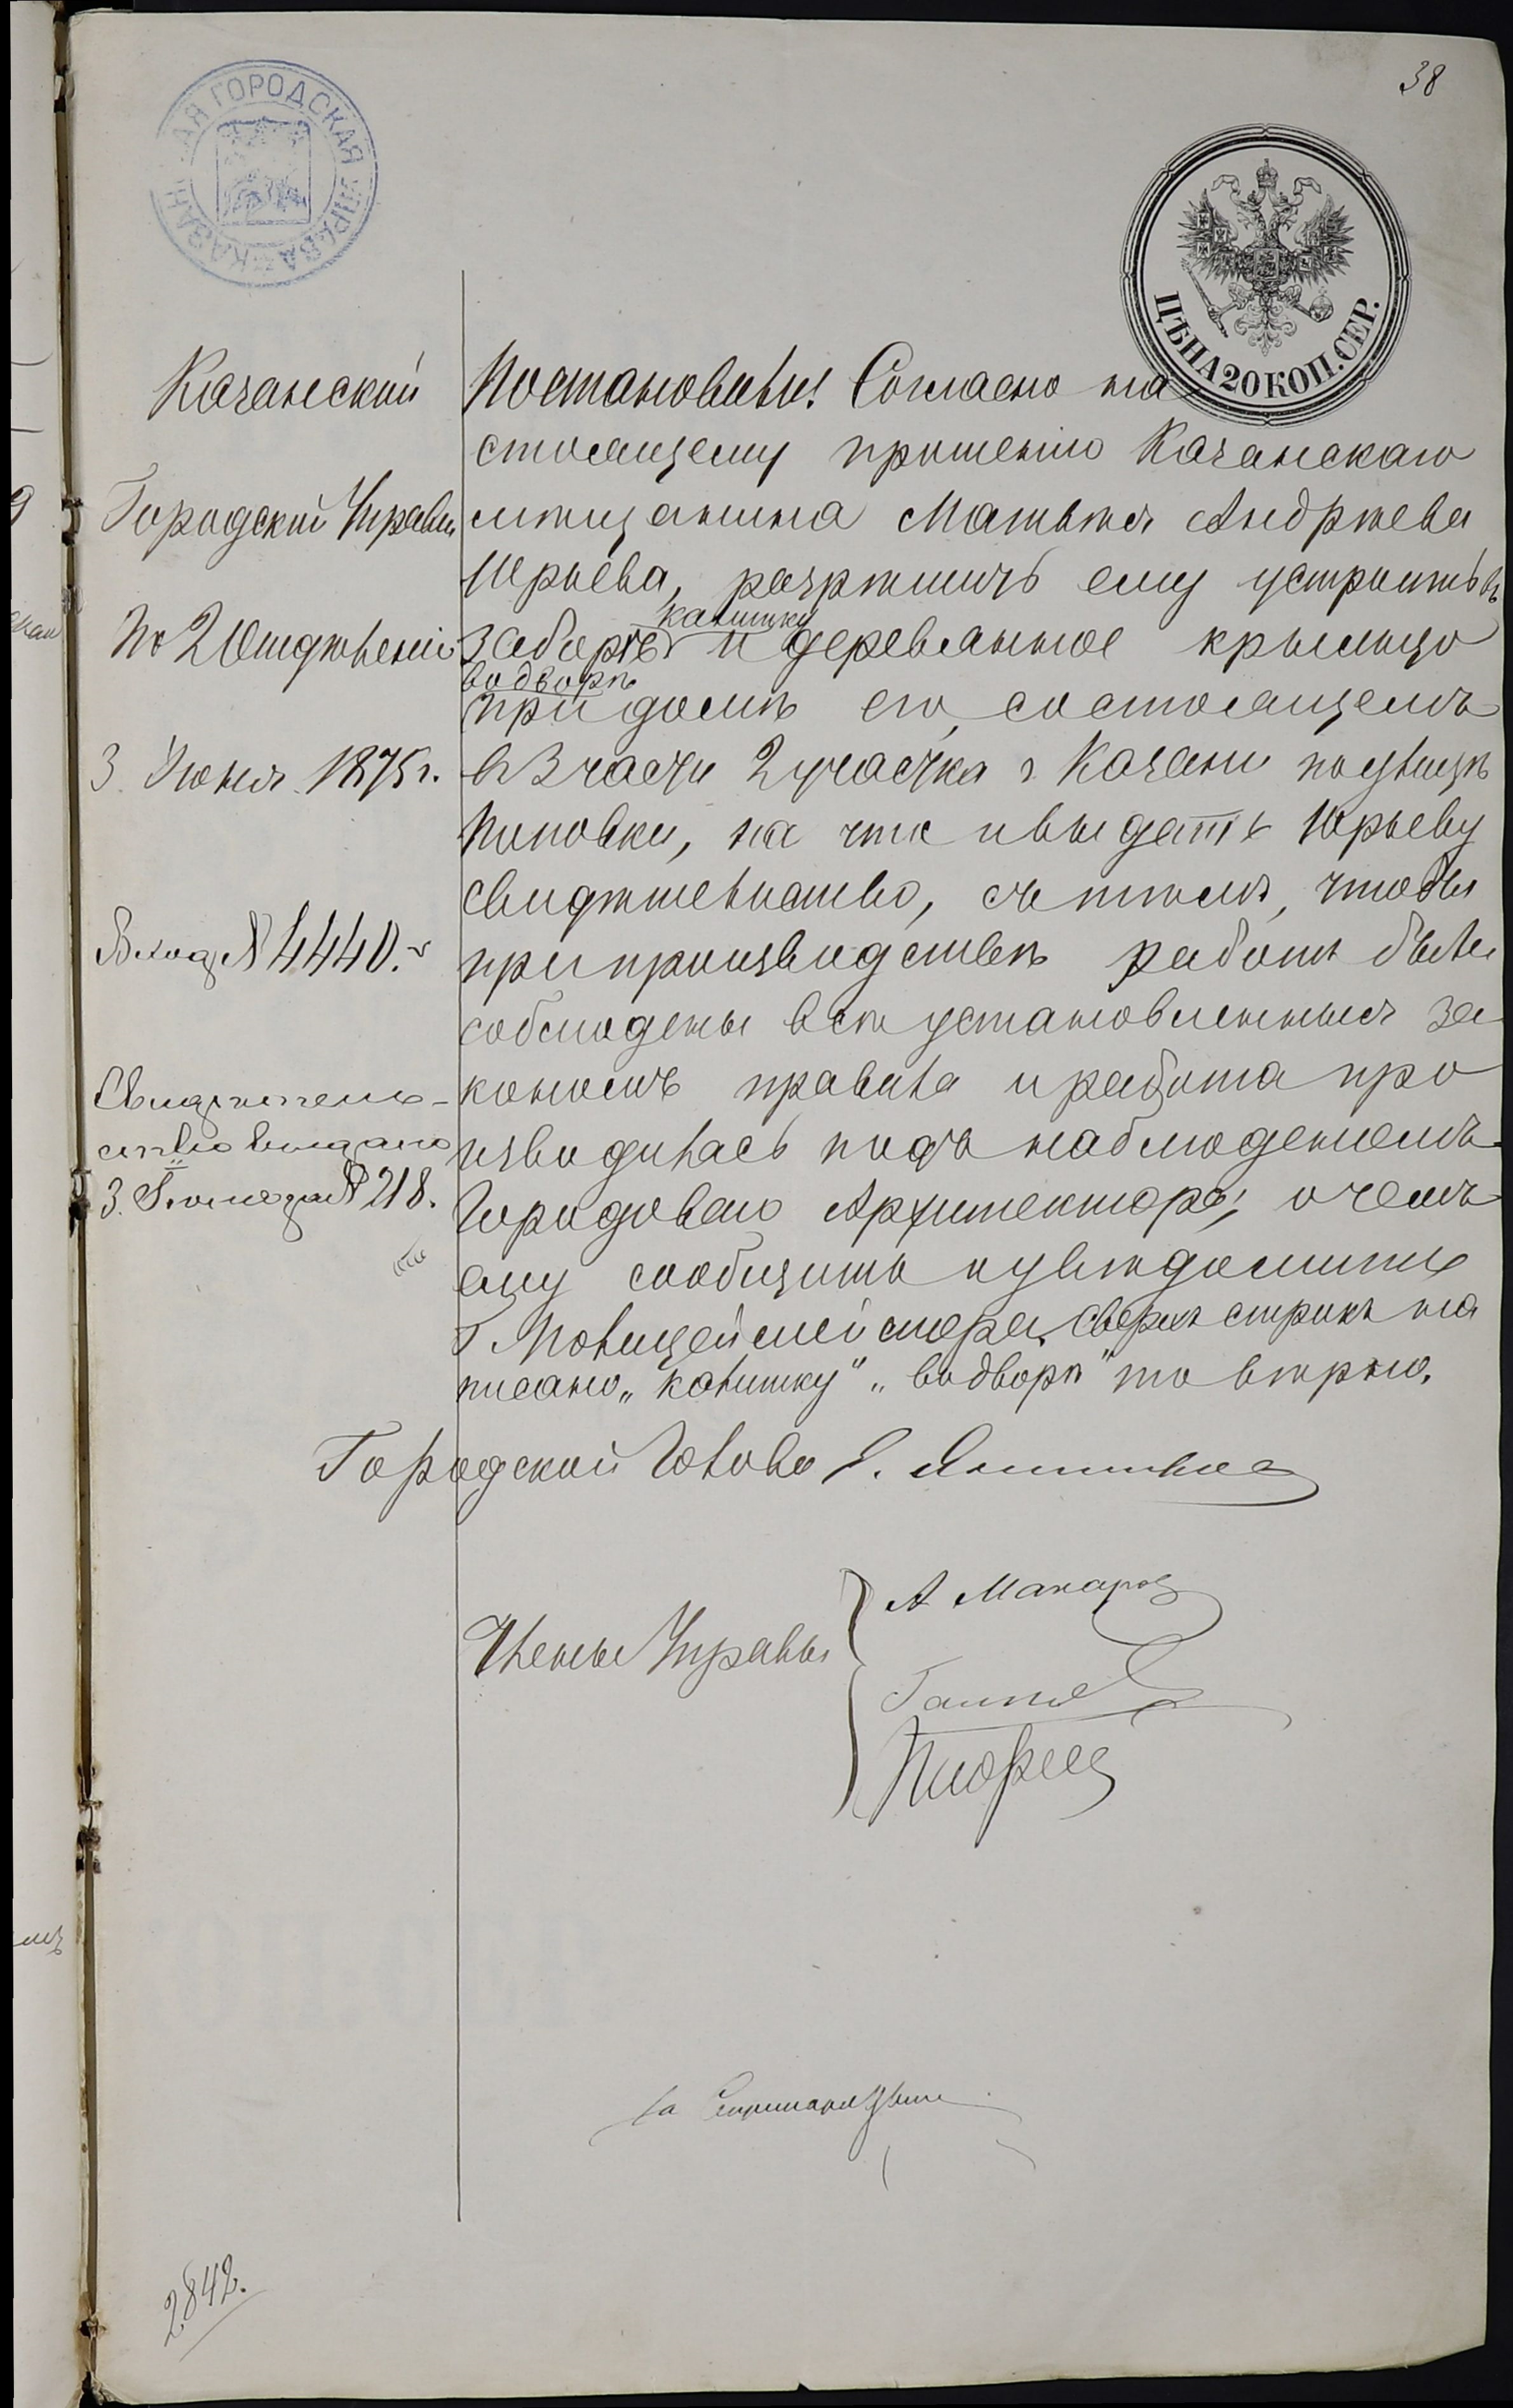 38
КАЗАНСКАЯ ГОРОДСКАЯ УПРАВА
ЦѢНА 20 КОП. СЕР.
Казанской
Городской Управы
По 2 Отдѣленію
3 Іюня 1875 г.
Вход. № 4440.
Свидѣтель-
ство выдано
3. Іюня за № 218.
Постановили: Согласно на
стоящему прошенію Казанскаго
мѣщанина Матвѣя Андреева
Юрьева, разрѣшить ему устроить въ
заборѣ калитку и деревянное крыльцо
во дворѣ
при домѣ его, состоящемъ
въ 3 части 2 участка г. Казани по улицѣ
Поповки, на что и выдать Юрьеву
свидѣтельство, съ тѣмъ, чтобы
при производствѣ работъ были
соблюдены всѣ установленныя за
кономъ правила и работа про
изводилась подъ наблюденіемъ
Городоваго Архитектора; о чемъ
ему сообщить и увѣдомить
Г. Полицеймейстера. Сверхъ строкъ на
писано „калитку" „во дворѣ" то вѣрно.
Городской Голова Э. Янишевскій
Члены Управы
А Макаровъ
За Секретаря
2842.